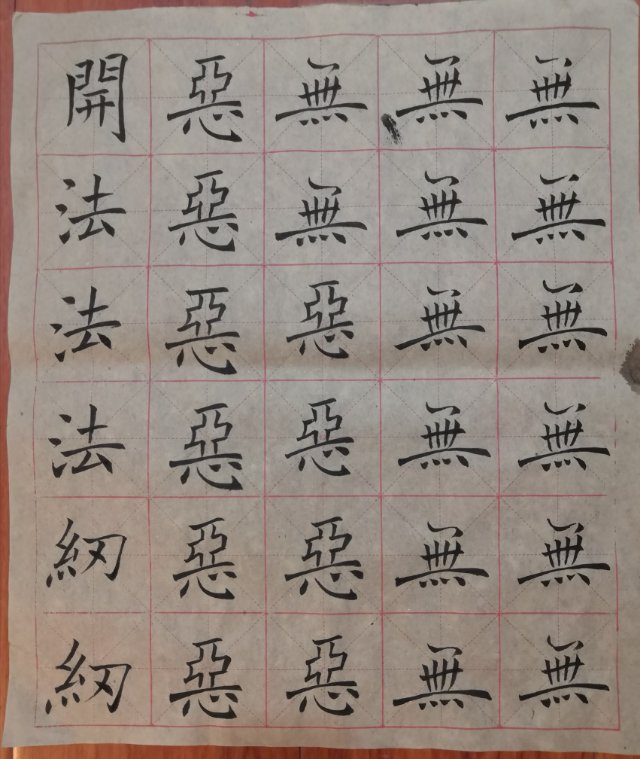 無無無無無無
無無無無無無
無無惡惡惡惡
惡惡惡惡惡惡
開法法法紉紉